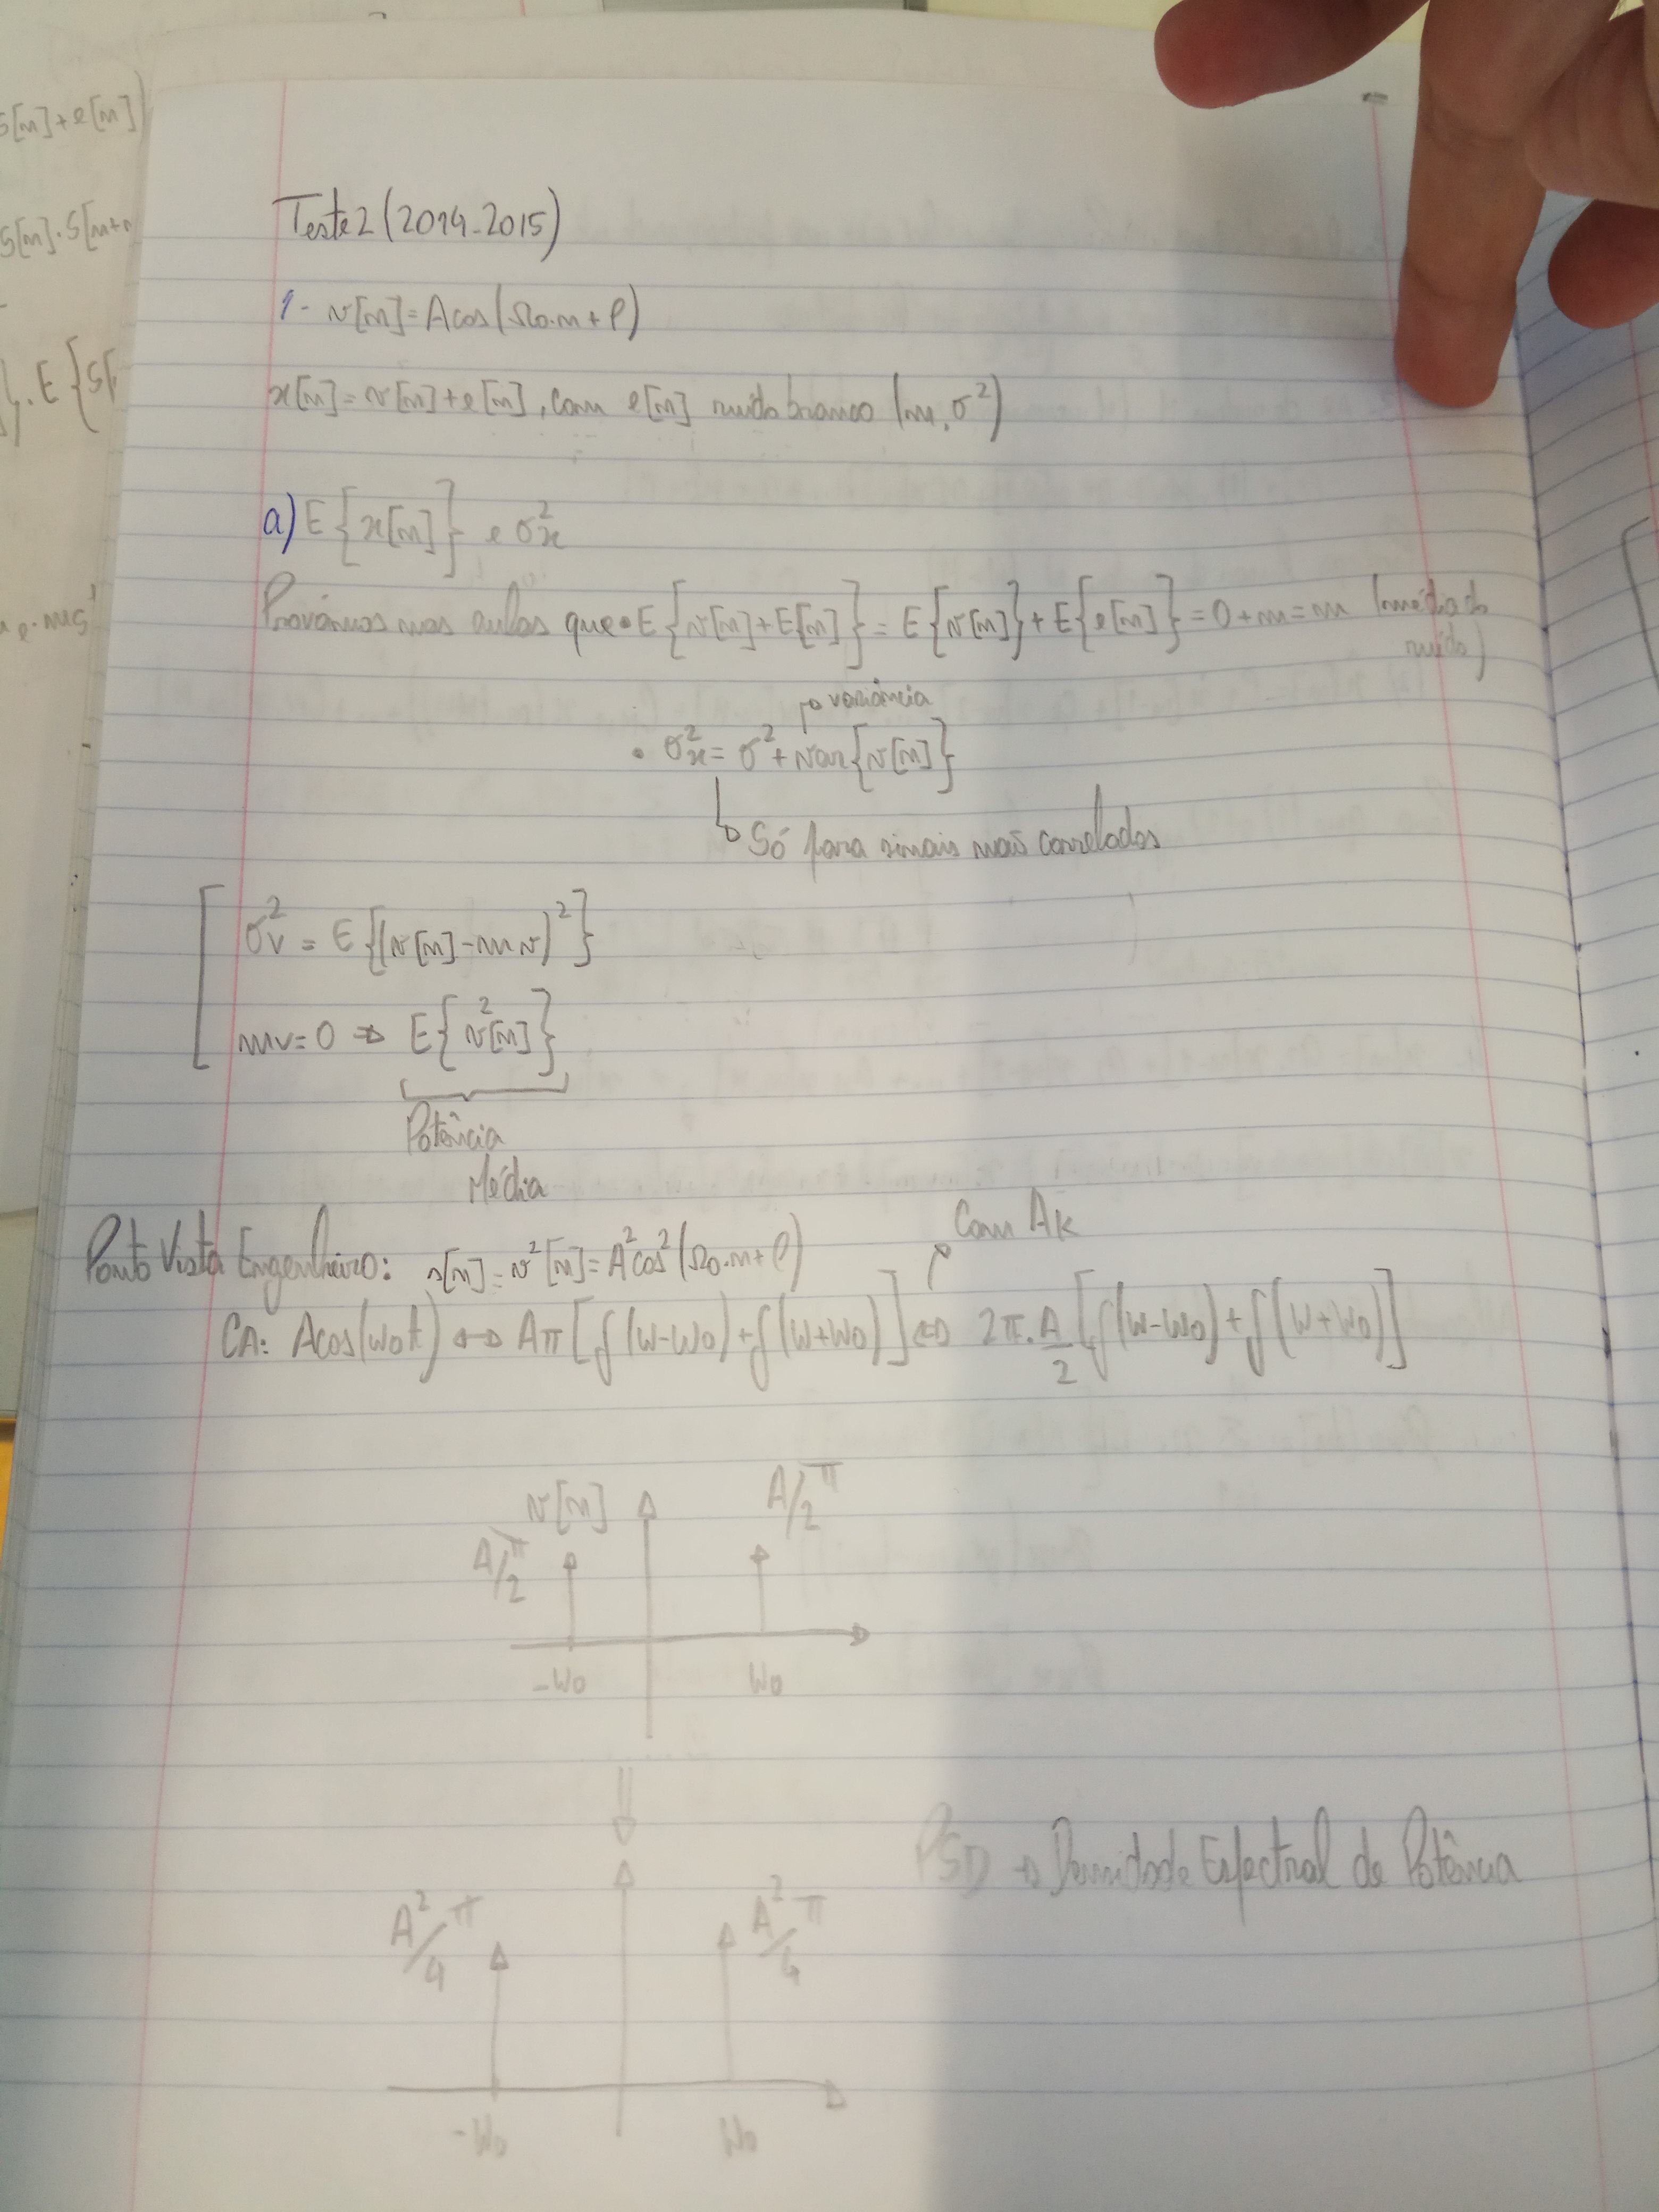 S[n]+e[n])
S[n].S[n+n
}.E{S[
Teste 2 (2014-2015)
1- v[n]=Acos(Ω0.n+φ)
x[n]=v[n]+e[n], com e[n] ruído branco (m,σ²)
a) E{x[n]} e σx²
Provámos nas aulas que • E{v[n]+E[n]} = E{v[n]}+E{e[n]} = 0+m=m (média do
ruído)
→ variância
• σx²= σ²+var{v[n]}
↳ Só para sinais não correlados
σv² = E{(v[n]-mv)²}
mv=0 ⇒ E{v²[n]}
Potência
Média
Com Ak
Ponto Vista Engenheiro: s[n]=v²[n]=A²cos²(Ω0.n+φ)
CA: Acos(w0t) ↔ Aπ[δ(w-w0)+δ(w+w0)] ⇔ 2π.A/2[δ(w-w0)+δ(w+w0)]
v[n] A/2 π
A/2 π
-w0 w0
⇓
PSD → Densidade Espectral de Potência
A²/4 π A²/4 π
-w0 w0